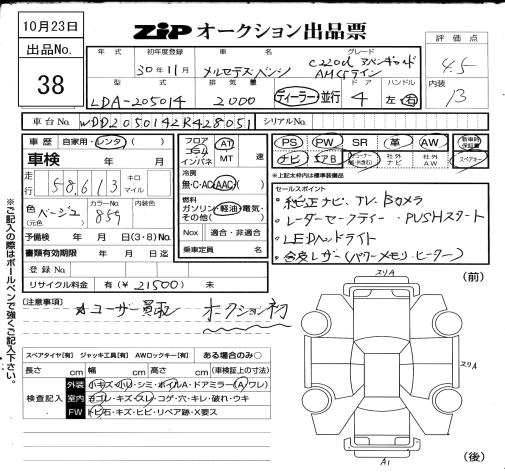 10月23日
出品No.
38
ZIP オークション出品票
年式 初年度登録 車名 グレード
30年11月 メルセデスベンツ C220d アバンギャルド AMGライン
評価点
4.5
型式 排気量 ドア ハンドル
LDA-205014 2000 ディーラー・並行 4 左・右
内装
B
車台No. WDD2050142R428051 シリアルNo.
車歴 自家用・レンタ( )
車検 年 月
走行 58,613 キロ マイル
色(元色) ベージュ カラーNo. 859 内装色
予備検 年 月 日(3・8)No.
書類有効期限 年 月 日
登録No.
リサイクル料金 有(¥ 21500) 未
フロア コラム インパネ AT MT 速
冷房 無・C・AC・AAC( )
燃料 ガソリン・軽油・電気・その他( )
Nox 適合・非適合
乗車定員 名
PS PW SR 革 AW 新車時保証書
ナビ エアB 社外ナビ 社外AW スペアキー
※上記太枠内は標準装備品
セールスポイント
・純正ナビ、TV、Bカメラ
・レーダーセーフティー・PUSHスタート
・LEDヘッドライト
・合皮レザー(パワーメモリ・ヒーター)
〔注意事項〕
☆ユーザー買取 オークション初
※ご記入の際はボールペンで強くご記入下さい。
スペアタイヤ[有] ジャッキ工具[有] AWロックキー[有] ある場合のみ○
長さ cm 幅 cm 高さ cm (車検証上の寸法)
検査記入
外装 小キズ・小U・シミ・ホイルA・ドアミラー(A・ワレ)
室内 ヨゴレ・キズ・スレ・コゲ・穴・キレ・破れ・ウキ
FW トビ石・キズ・ヒビ・リペア跡・X要ス
(前)
スリA
スリA
A1
(後)